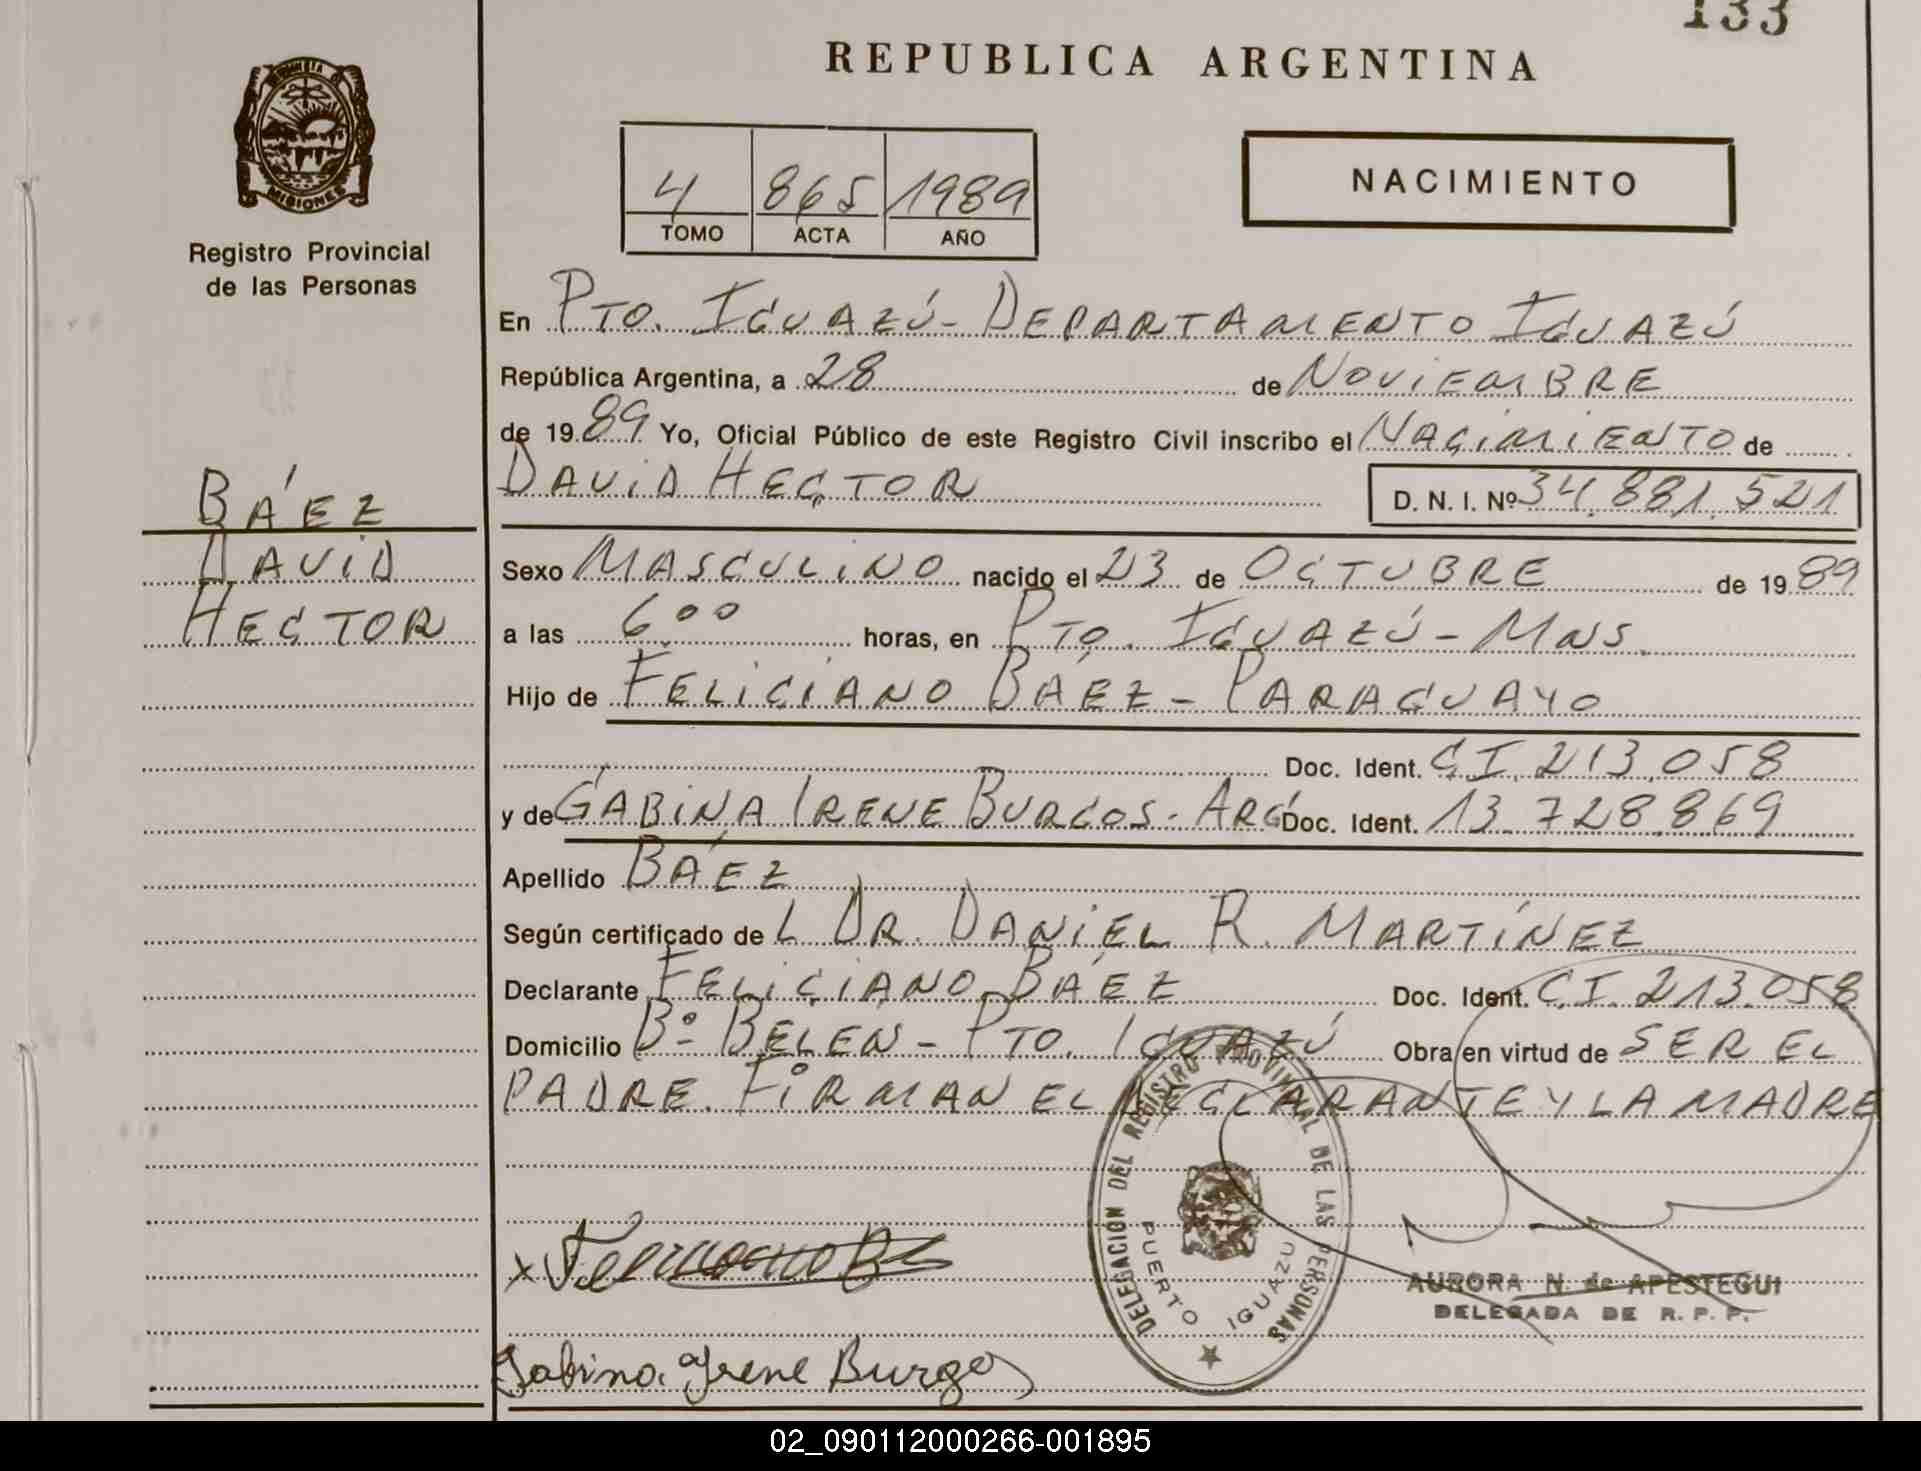 133
REPUBLICA ARGENTINA
MISIONES
Registro Provincial
de las Personas
4 865 1989
TOMO ACTA AÑO
NACIMIENTO
En PTO. IGUAZÚ - DEPARTAMENTO IGUAZÚ
República Argentina, a 28 de NOVIEMBRE
de 1989 Yo, Oficial Público de este Registro Civil inscribo el NACIMIENTO de
DAVID HECTOR D. N. I. Nº 34.881.521
BÁEZ
DAVID
HECTOR
Sexo MASCULINO nacido el 23 de OCTUBRE de 1989
a las 6⁰⁰ horas, en PTO. IGUAZÚ - MNS.
Hijo de FELICIANO BÁEZ - PARAGUAYO
Doc. Ident. C.I. 213.058
y de GABINA IRENE BURGOS - ARG Doc. Ident. 13.728.869
Apellido BÁEZ
Según certificado de L DR. DANIEL R. MARTÍNEZ
Declarante FELICIANO BÁEZ Doc. Ident. C.I. 213.058
Domicilio Bº BELEN - PTO. IGUAZÚ Obra en virtud de SER EL
PADRE. FIRMAN EL DECLARANTE Y LA MADRE
DELEGACION DEL REGISTRO PROVINCIAL DE LAS PERSONAS
PUERTO IGUAZU
AURORA N. de APESTEGUI
DELEGADA DE R. P. P.
Gabina Irene Burgos
02_090112000266-001895